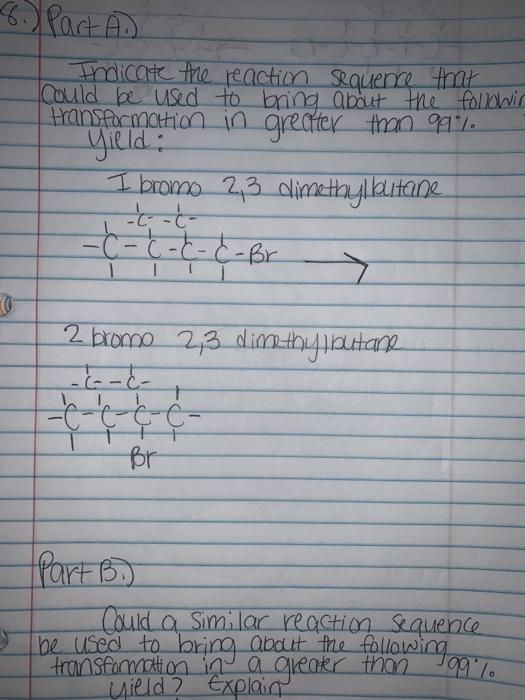 8.) Part A.)
Indicate the reaction sequence that
could be used to bring about the followin
transformation in greater than 99%.
yield:
1 bromo 2,3 dimethylbutane
-C- -C-
-C-C-C-C-Br →
2 bromo 2,3 dimethylbutane
-C--C-
-C-C-C-C-
Br
Part B.)
Could a similar reaction sequence
be used to bring about the following
transformation in a greater than 99%
yield? Explain